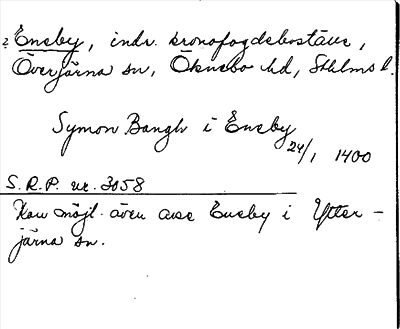 ? Eneby, indr. kronofogdeboställe,
Överjärna sn, Öknebo hd, Sthlms l.
Symon Bangh i Eneby
24/1 1400
S.R.P. nr. 3058
Kan möjl. även avse Eneby i Ytter-
järna sn.